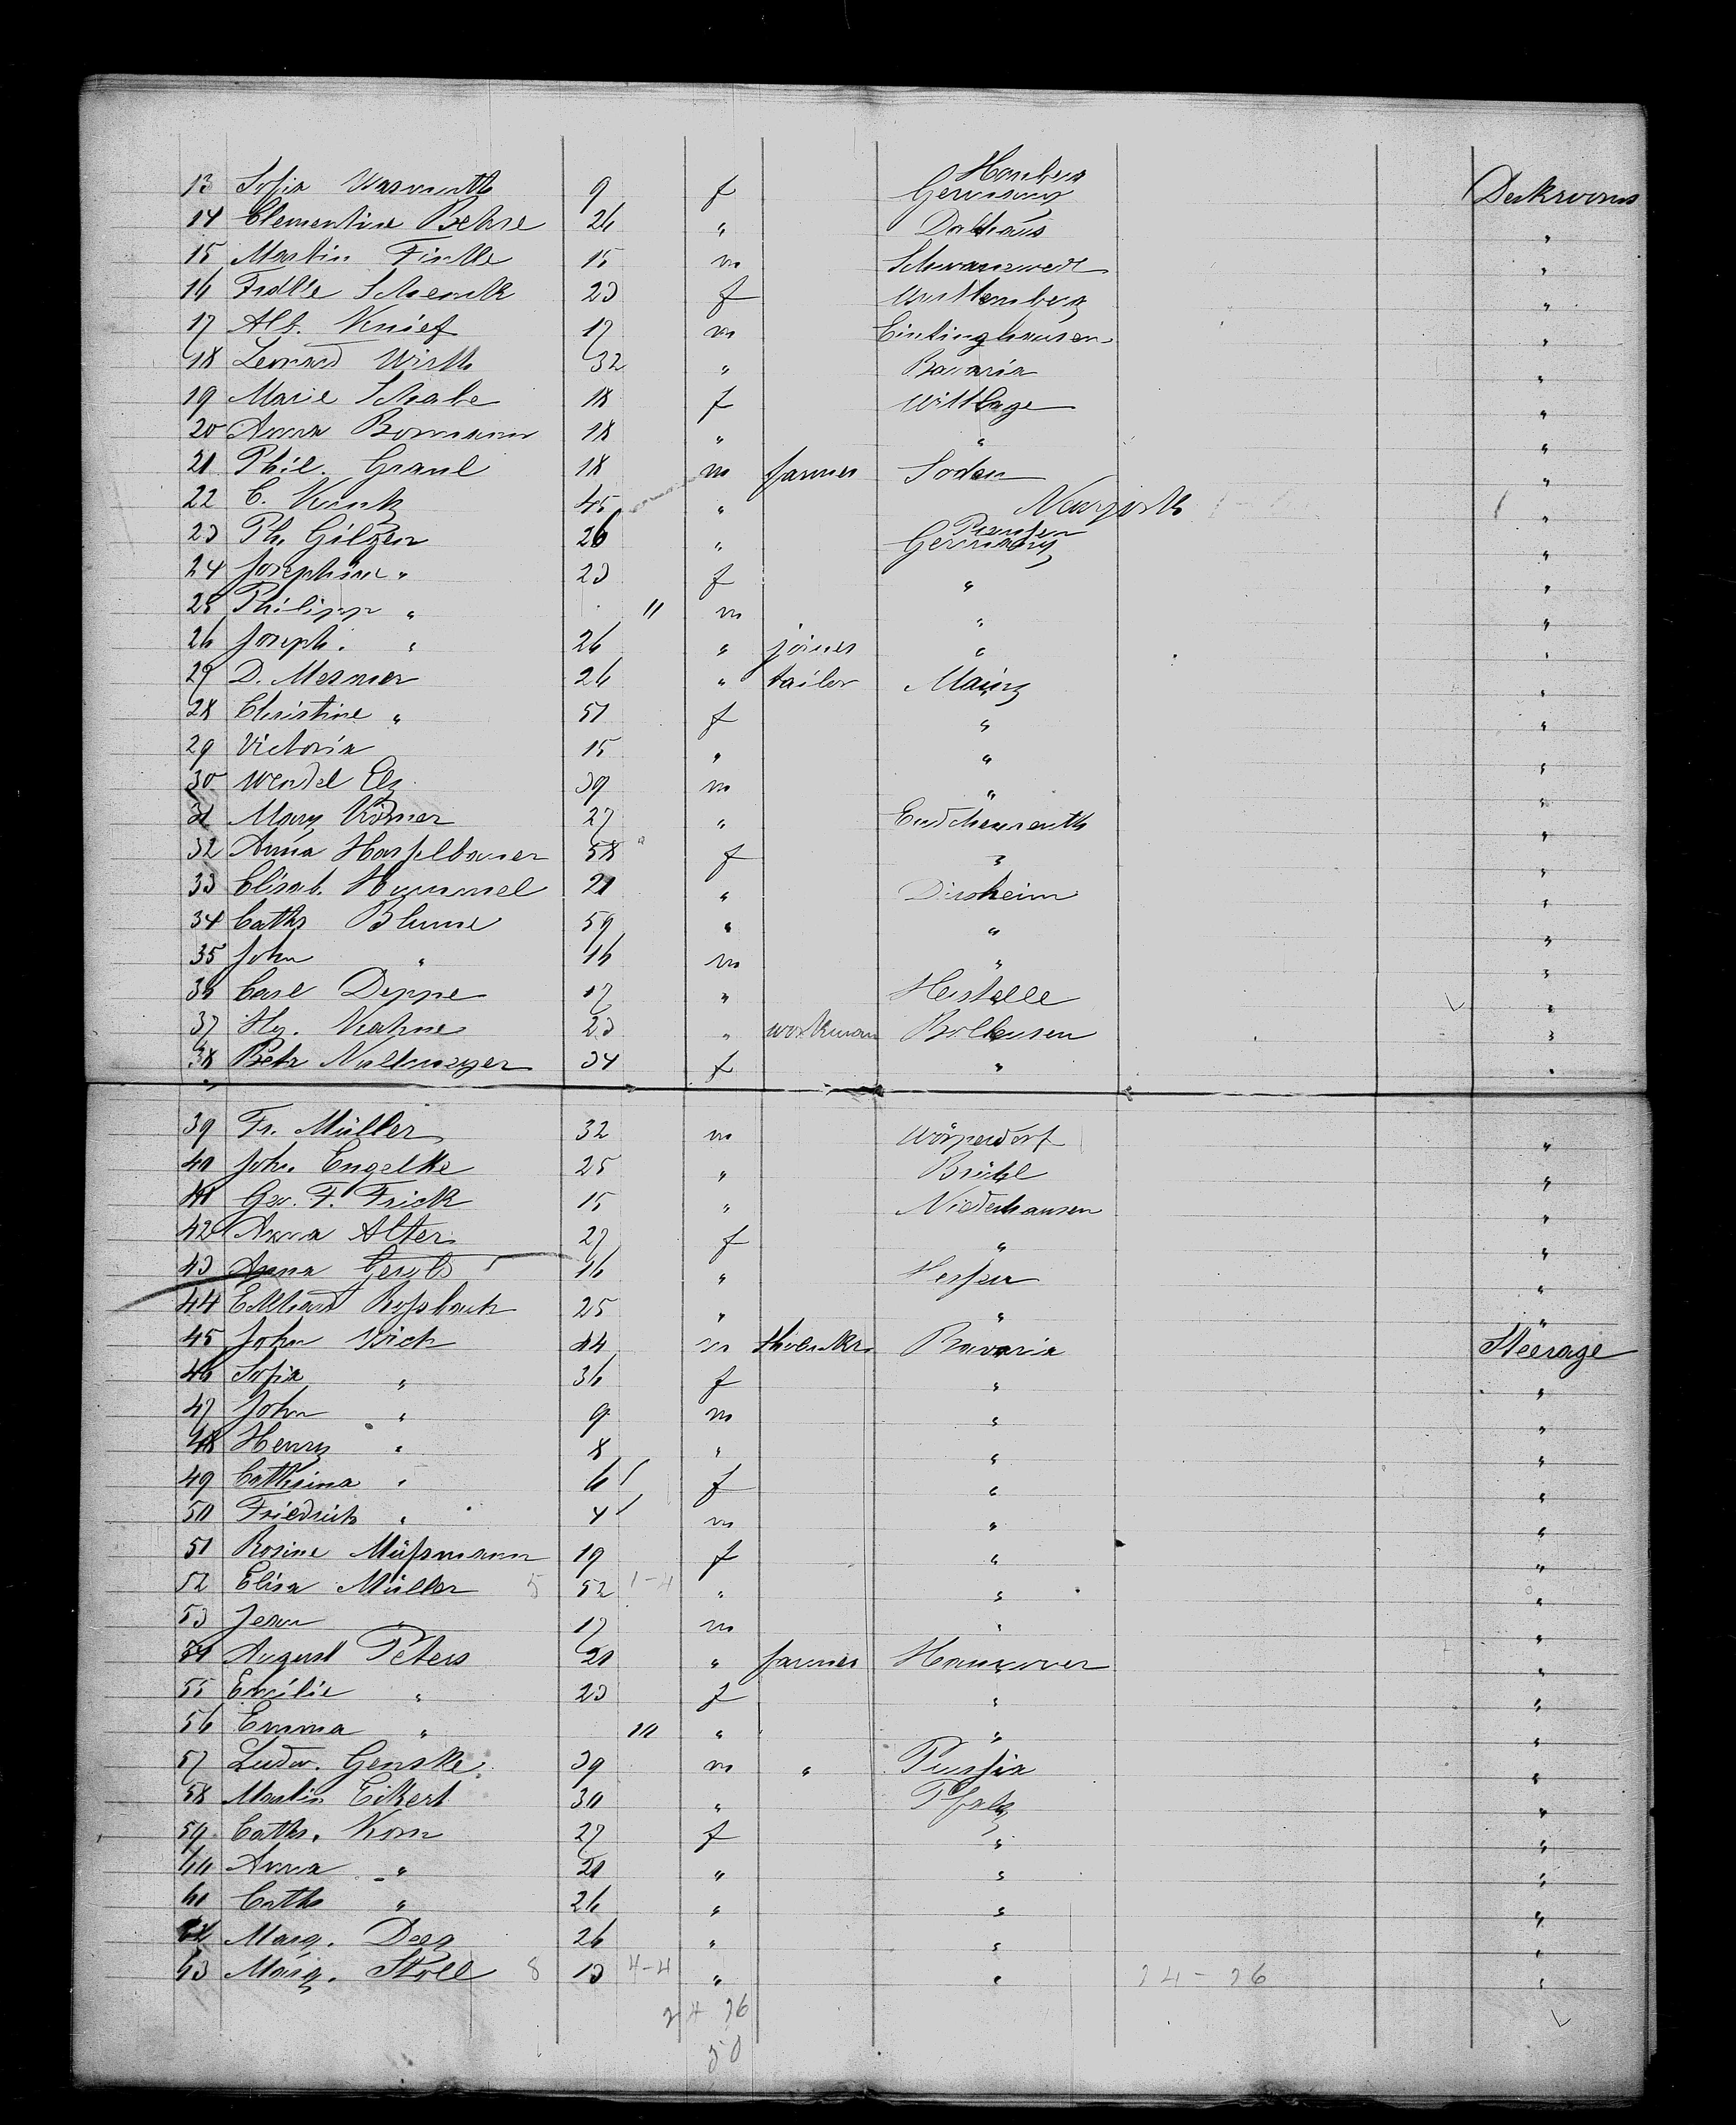 Homberg
13 Sofia Warmuth 9 f Germany Deckrooms
14 Clementine Behre 26 " Dalhaus "
15 Martin Finke 15 m Schwanewede "
16 Fridke Schenck 23 f Württemberg "
17 Alb. Knief 17 m Eintinghausen "
18 Leonard Wirth 32 " Bavaria "
19 Marie Schabe 18 f Wittlage "
20 Anna Bormann 18 " " "
21 Phil. Graul 18 m farmer Soden "
22 C. Kuntz 45 " New york "
23 Ph. Gilzen 26 " Preussen Germany "
24 Josephine " 23 f " "
25 Philipp " " m " "
26 Joseph. " 26 " joiner " "
27 D. Mesmer 26 " tailor Mainz "
28 Christine " 51 f " "
29 Victoria 15 " " "
30 Wendel Elz 39 m " "
31 Mary Körner 27 "
32 Anna Hasselbauer 58 f " "
33 Elisab. Hummel 21 " Dirsheim "
34 Caths Blume 59 " " "
35 John " 16 m " "
36 Carl Deppe 17 " Herstelle "
37 Hy. Kahne 23 " workman Bolhusen "
38 34 f " "
39 Fr. Müller 32 m Wörperdorf "
40 John Engelke 25 " Brühl "
41 Geo. F. Frick 15 " Niederhausen "
42 Anna Alter 27 f " "
43 Anna Gerold 16 " Hessen "
44 Eckhard Rossbach 25 " " "
45 John 44 m Bavaria Steerage
46 Sofia " 36 f " "
47 John " 9 m " "
48 Henry " 8 " " "
49 Cathrina " 6 f " "
50 Friedrich " 4 m " "
51 Rosine Müssmann 19 f " "
52 Elisa Müller 5 52 1-4 " " "
53 Jean " 17 m " "
54 August Peters 21 " farmer Hannover "
55 Emilie " 23 f " "
56 Emma " 10 " " "
57 Ludw. Genske 39 m " Prussia "
58 Martin Eckert 30 " Pfalz "
59 Caths. Korn 27 f " "
60 Anna " 21 " " "
61 Caths " 26 " " "
62 Marg. Deez 26 " " "
63 Marg. Stoll 8 13 4-4 " " 24-26 "
24 26
50